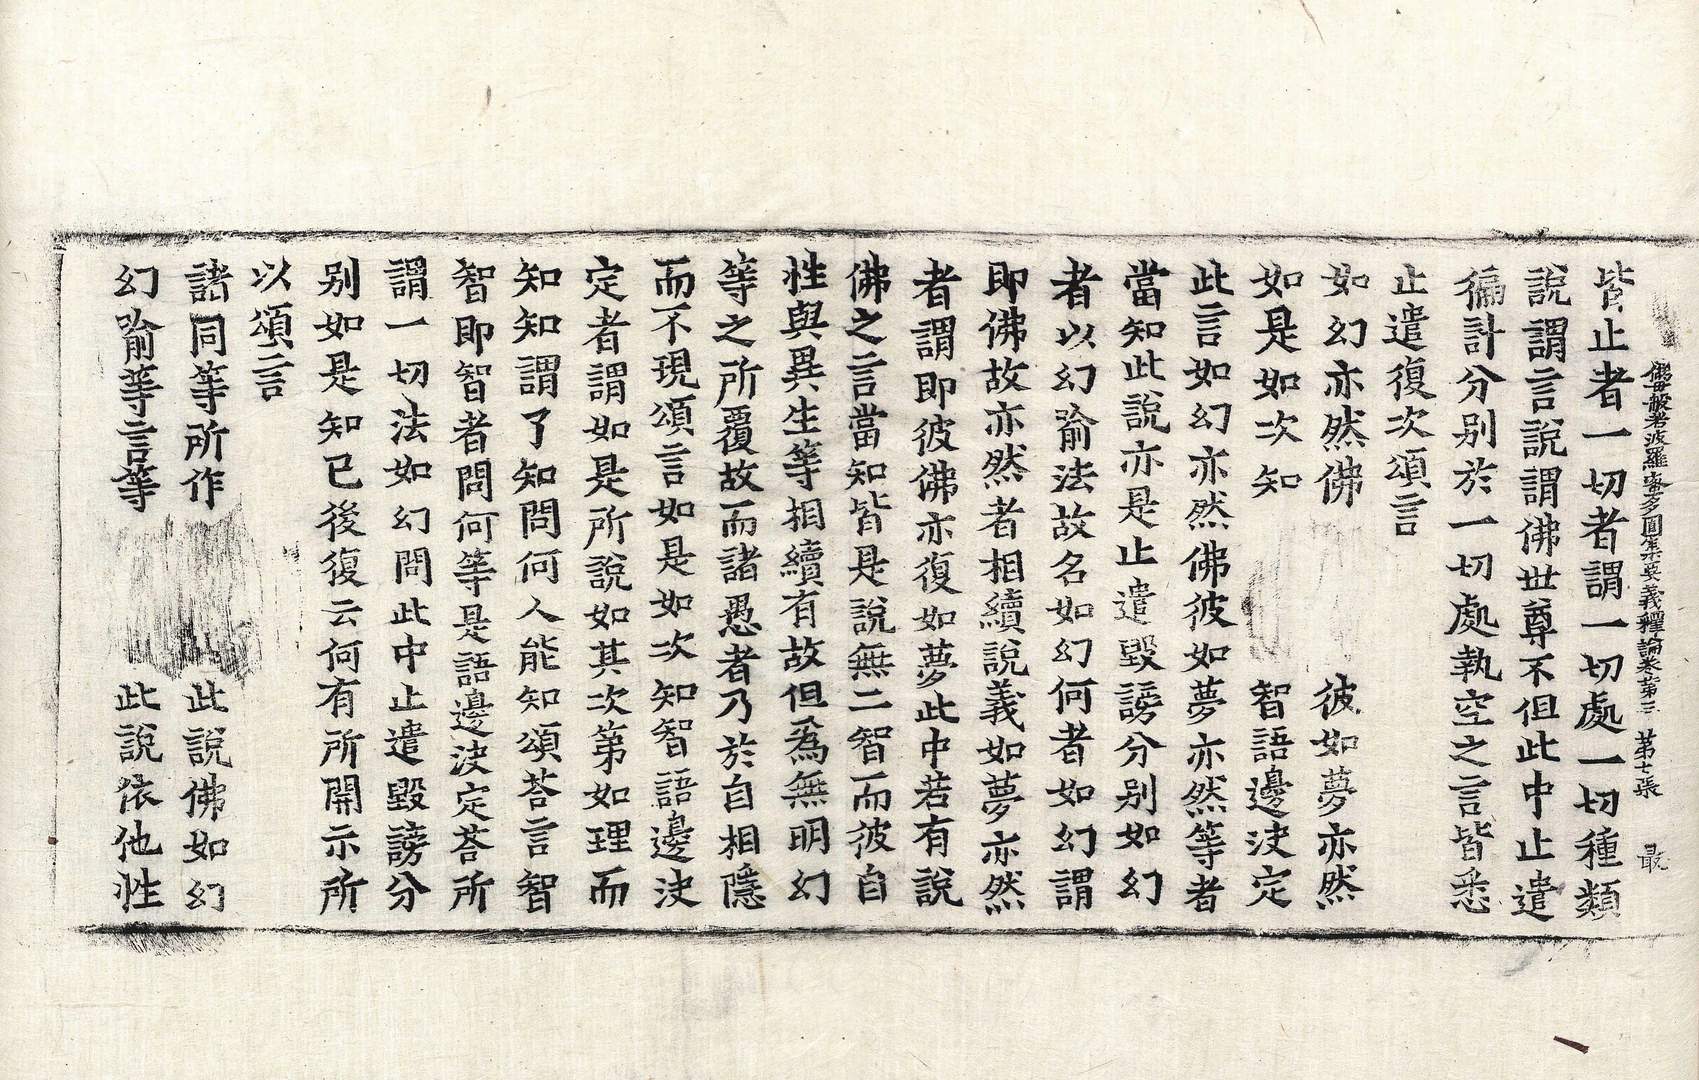 佛母般若波羅蜜多圓集要義釋論卷第三 第七張 最
皆止者一切者謂一切處一切種類
說謂言說謂佛世尊不但此中止遣
徧計分別於一切處執空之言皆悉
止遣復次頌言
如幻亦然佛 彼如夢亦然
如是如次知 智語邊决定
此言如幻亦然佛彼如夢亦然等者
當知此說亦是止遣毀謗分別如幻
者以幻喻法故名如幻何者如幻謂
即佛故亦然者相續說義如夢亦然
者謂即彼佛亦復如夢此中若有說
佛之言當知皆是說無二智而彼自
性與異生等相續有故但爲無明幻
等之所覆故而諸愚者乃於自相隱
而不現頌言如是如次知智語邊决
定者謂如是所說如其次第如理而
知知謂了知問何人能知頌荅言智
智即智者問何等是語邊决定荅所
謂一切法如幻問此中止遣毀謗分
別如是知已後復云何有所開示所
以頌言
諸同等所作 此說佛如幻
幻喻等言等 此說依他性